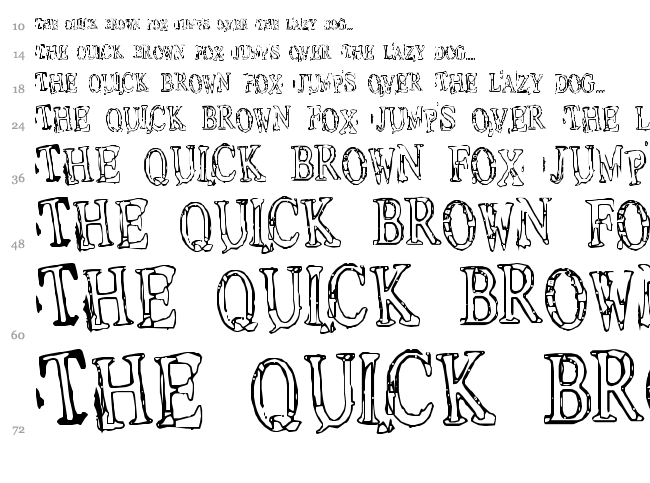 10 THE QUICK BROWN FOX JUMPS OVER THE LAZY DOG...
14 THE QUICK BROWN FOX JUMPS OVER THE LAZY DOG...
18 THE QUICK BROWN FOX JUMPS OVER THE LAZY DOG...
24 THE QUICK BROWN FOX JUMPS OVER THE L
36 THE QUICK BROWN FOX JUMP
48 THE QUICK BROWN FO
60 THE QUICK BROWN
72 THE QUICK BR